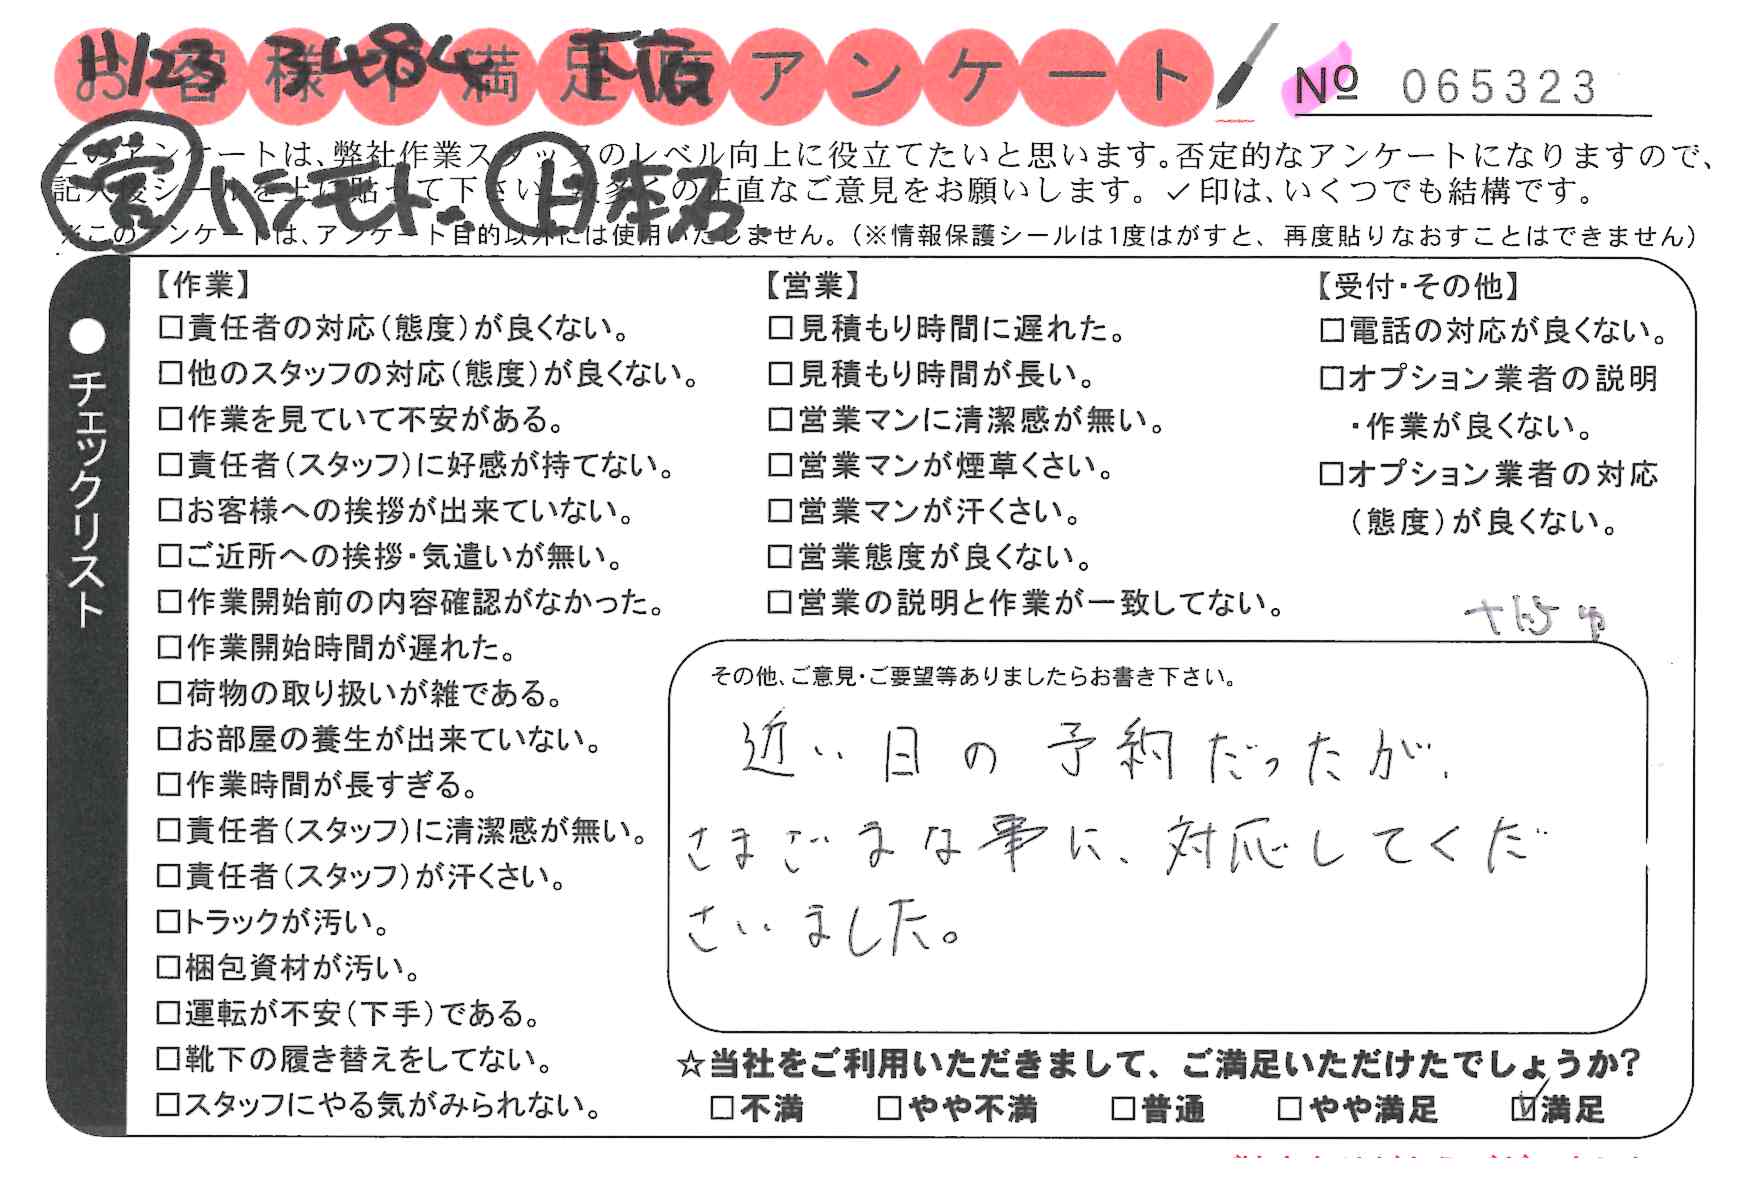 お客様不満足度アンケート
№ 065323
このアンケートは、弊社作業スタッフのレベル向上に役立てたいと思います。否定的なアンケートになりますので、
記入後シールを上に貼って下さい。数多くの正直なご意見をお願いします。✓印は、いくつでも結構です。
※このアンケートは、アンケート目的以外には使用いたしません。（※情報保護シールは1度はがすと、再度貼りなおすことはできません）
●チェックリスト
【作業】
□責任者の対応（態度）が良くない。
□他のスタッフの対応（態度）が良くない。
□作業を見ていて不安がある。
□責任者（スタッフ）に好感が持てない。
□お客様への挨拶が出来ていない。
□ご近所への挨拶・気遣いが無い。
□作業開始前の内容確認がなかった。
□作業開始時間が遅れた。
□荷物の取り扱いが雑である。
□お部屋の養生が出来ていない。
□作業時間が長すぎる。
□責任者（スタッフ）に清潔感が無い。
□責任者（スタッフ）が汗くさい。
□トラックが汚い。
□梱包資材が汚い。
□運転が不安（下手）である。
□靴下の履き替えをしてない。
□スタッフにやる気がみられない。
【営業】
□見積もり時間に遅れた。
□見積もり時間が長い。
□営業マンに清潔感が無い。
□営業マンが煙草くさい。
□営業マンが汗くさい。
□営業態度が良くない。
□営業の説明と作業が一致してない。
【受付・その他】
□電話の対応が良くない。
□オプション業者の説明
・作業が良くない。
□オプション業者の対応
（態度）が良くない。
その他、ご意見・ご要望等ありましたらお書き下さい。
近い日の予約だったが、
さまざまな事に、対応してくだ
さいました。
☆当社をご利用いただきまして、ご満足いただけたでしょうか？
□不満 □やや不満 □普通 □やや満足 ☑満足